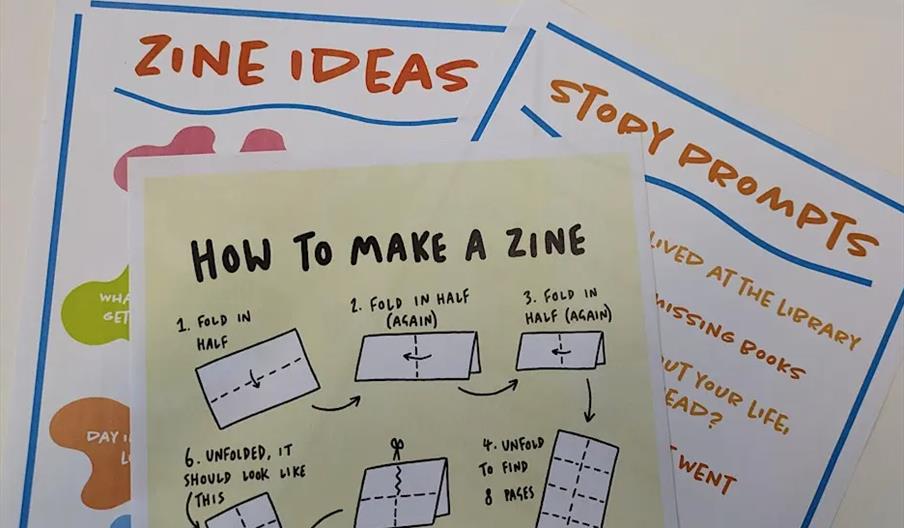 ZINE IDEAS
WHA
GET
DAY I
L
STORY PROMPTS
LIVED AT THE LIBRARY
MISSING BOOKS
OUT YOUR LIFE,
EAD?
T WENT
HOW TO MAKE A ZINE
1. FOLD IN
HALF
2. FOLD IN HALF
(AGAIN)
3. FOLD IN
HALF (AGAIN)
4. UNFOLD
TO FIND
8 PAGES
6. UNFOLDED, IT
SHOULD LOOK LIKE
THIS